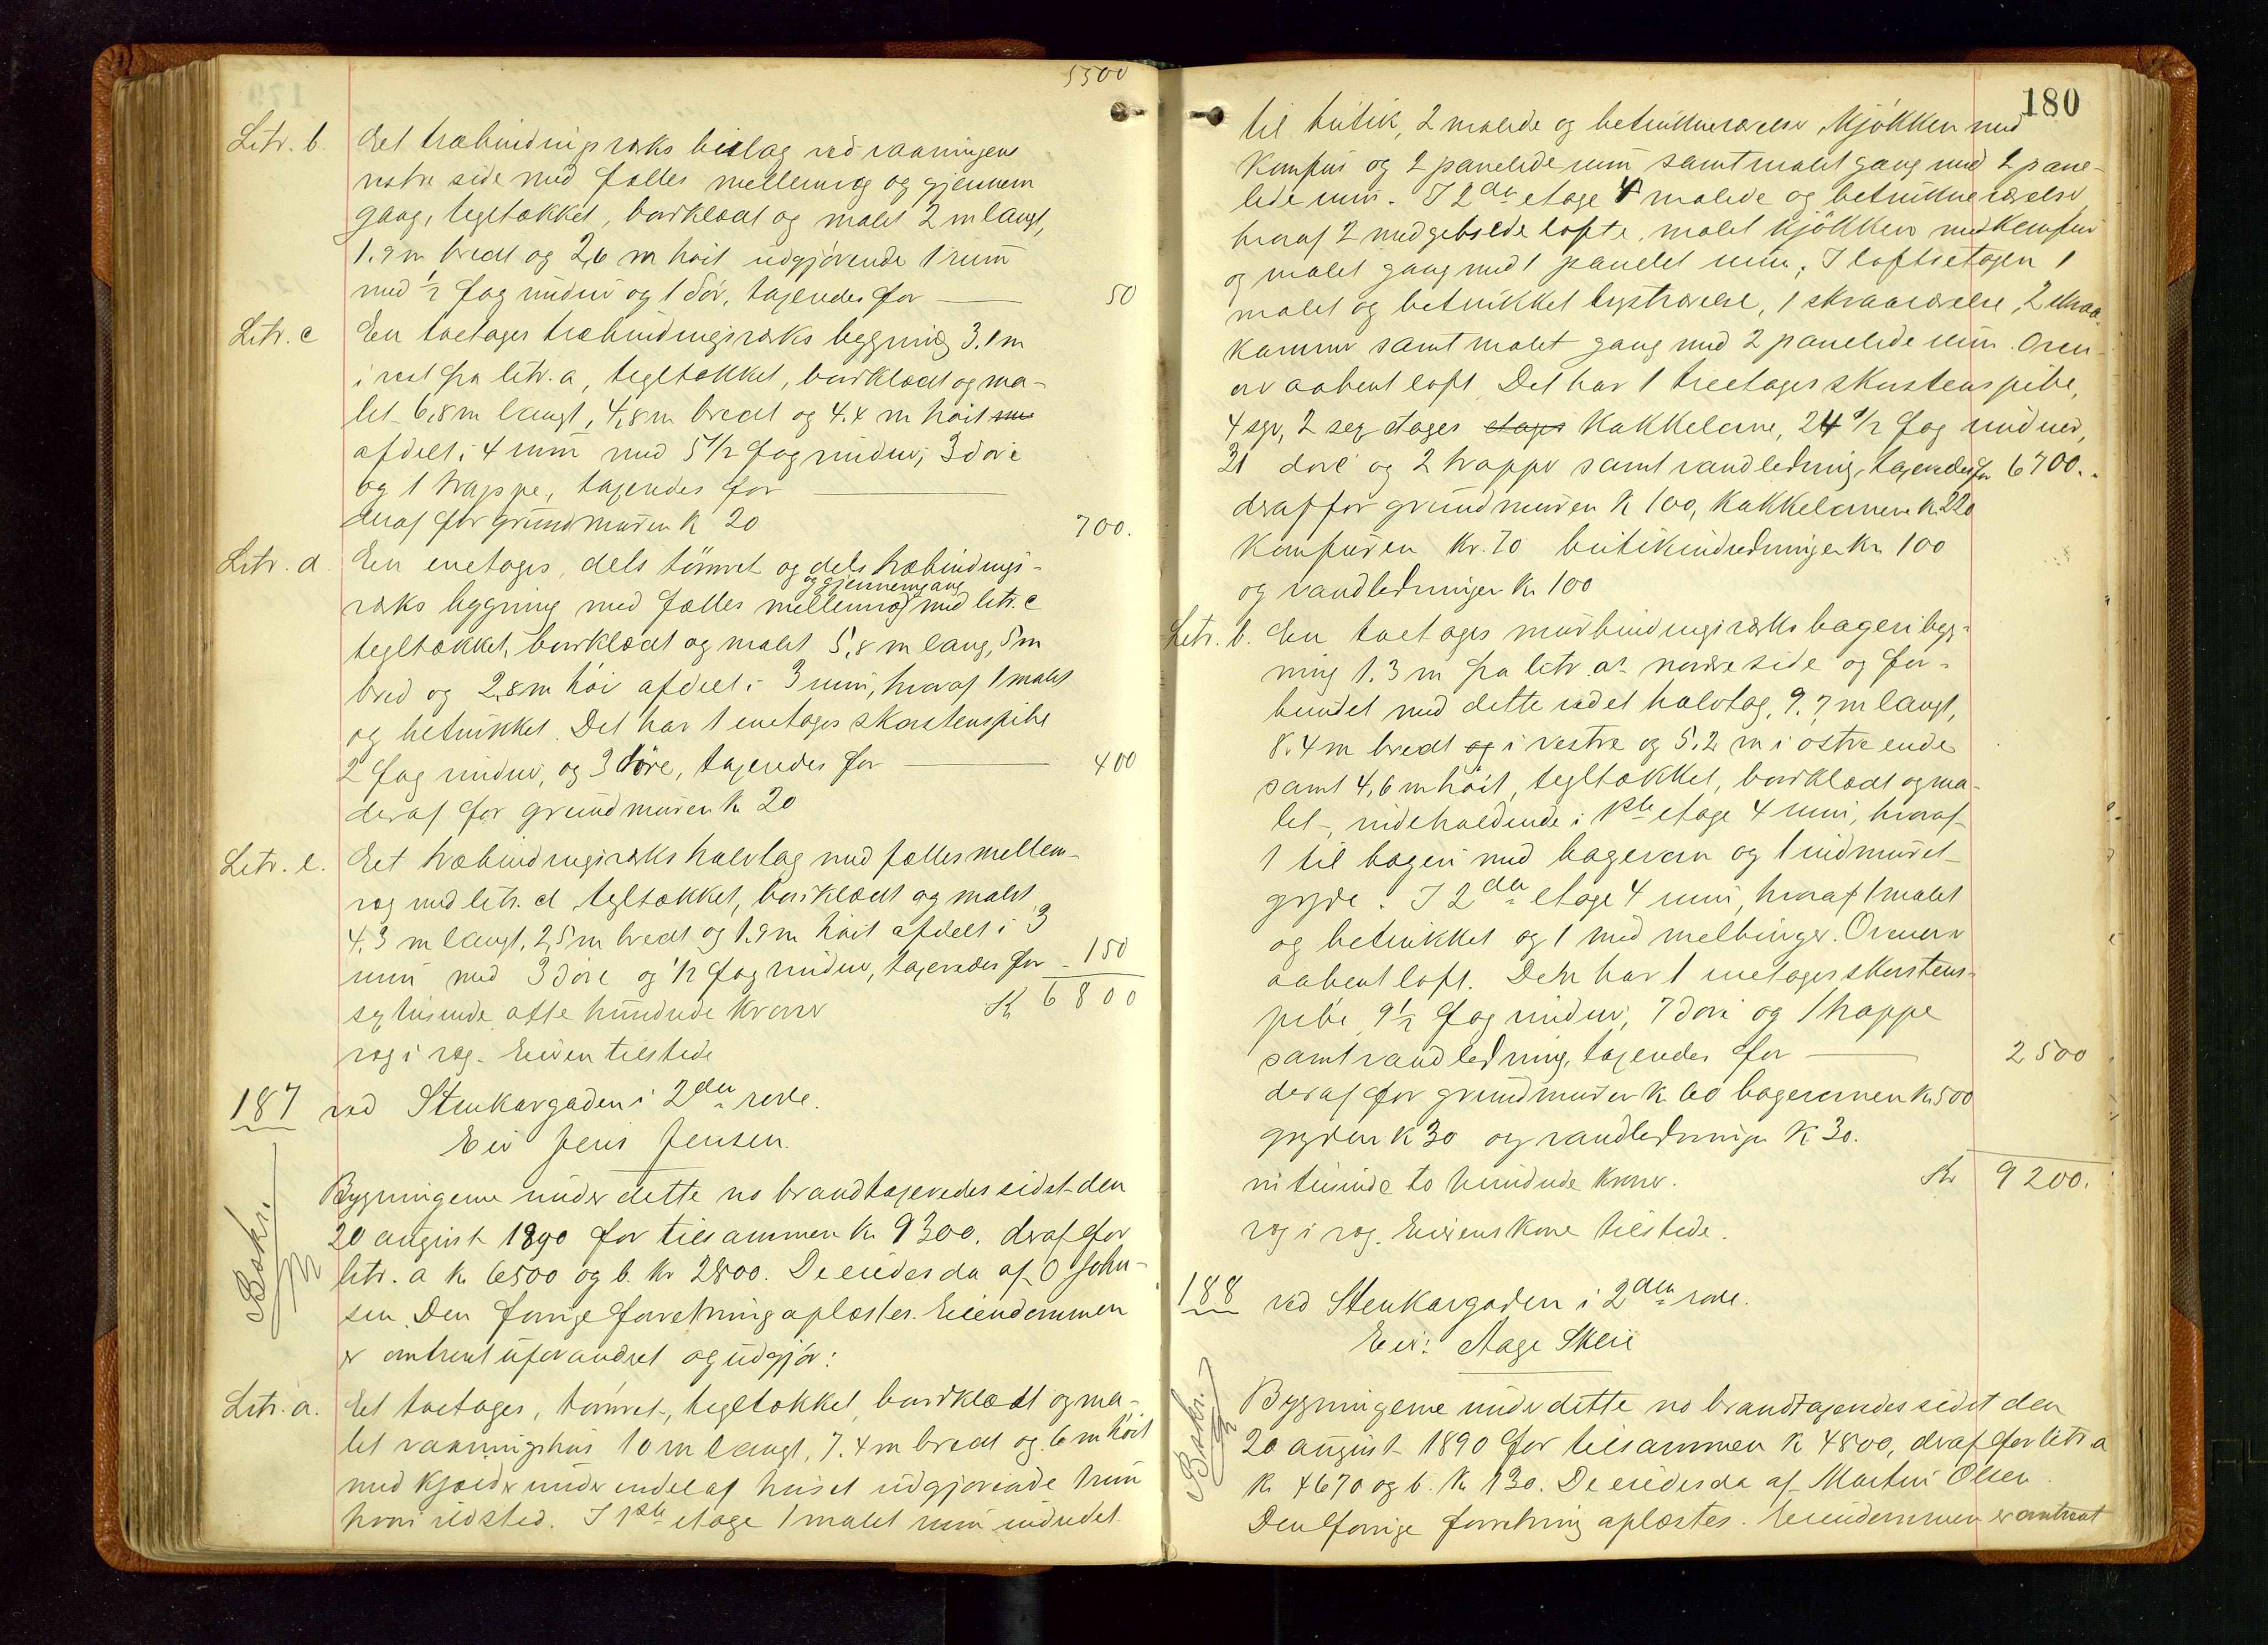 5500
Litr. b. Et træbindingsværks bislag ved vaaningens
vestre side med fælles mellemvæg og gjennem
gang, tegltækket, bordklædt og malet 2 m langt,
1.9 m bredt og 2,6 m høit udgjørende 1 rum
med ½ fag vinduer og 1 dør, taxeredes for 50
Litr. c En toetages træbindingsværks bygning 3.1 m
i vest fra litr. a, tegltækket, bordklædt og ma-
let 6,8 m langt, 4,8 m bredt og 4.4 m høit
afdelt i 4 rum med 5½ fag vinduer, 3 døre
og 1 trappe, taxeredes for
deraf for grundmuren K 20 700.
Litr. d. En enetages, dels tømret og dels træbindings-
og gjennemgang
værks bygning med fælles mellemvæg med litr. c
tegltækket, bordklædt og malet 5,8 m lang, 5 m
bred og 2,8 m høi afdelt i 3 rum, hvoraf 1 malet
og betrukket. Det har 1 enetages skorstenspibe
2 fag vinduer, og 3 døre, taxeredes for 400
deraf for grundmuren K 20
Litr. e. Et træbindingsværks halvtag med fælles mellem-
væg med litr. d tegltækket, bordklædt og malet
4.3 m langt, 2,5 m bredt og 1.9 m høit afdelt i 3
rum med 3 døre og ½ fag vinduer, taxeredes for 150
sex tusinde otte hundrede kroner K 6800
væg i væg. Eieren tilstede
187 ved Stenkargaden i 2den rode.
Eier Jens Jensen.
Bokr.
Bygningerne under dette no brandtaxeredes sidst den
20 august 1890 for tilsammen K 9300. deraf for
litr. a K 6500 og b. Kr 2800. De eiedes da af O John-
sen. Den forrige forretning oplæstes. Eiendommen
er omtrent uforandret og udgjør:
Litr. a. Et toetages, tømret, tegltækket, bordklædt og ma-
let vaaningshus 10 m langt, 7.4 m bredt og 6 m høit
med kjælder under endel af huset udgjørende 1 rum
hvori ildsted. I 1ste etage 1 malet rum indredet
180
til butik, 2 malede og betrukne værelser, kjøkken med
komfur og 2 panelede rum samt malet gang med 2 pane-
lede rum. I 2den etage 4 malede og betrukne værelser
hvoraf 2 med gebsede lofte, malet kjøkken med komfur
og malet gang med 1 panelet rum; I loftsetagen 1
malet og betrukket kvistværelse, 1 skraaværelse, 2 skraa-
kammer samt malet gang med 2 panelede rum. Oven-
over aabent loft. Det har 1 treetages skorstenspibe,
4 sgr, 2 sex etages etages kakkelovne, 24½ fag vinduer,
31 døre og 2 trapper samt vandledning, taxeredes for 6700.
deraf for grundmuren K 100, kakkelovnene K. 220
komfuren Kr. 70 butikindredningen Kr 100
og vandledningen Kr 100
Litr. b. En toetages murbindingsværks bageribyg-
ning 1.3 m fra litr. a's nordre side og for-
bundet med dette ved et halvtag, 9.7 m langt,
8.4 m bredt og i vestre og 5.2 m i østre ende
samt 4,6 m høit, tegltækket, bordklædt og ma-
let, indeholdende i 1ste etage 4 rum, hvoraf
1 til bageri med bagerovn og 1 indmuret
gryde. I 2den etage 4 rum, hvoraf 1 malet
og betrukket og 1 med melbinger. Ovenover
aabent loft. Den har 1 enetages skorstens-
pibe, 9½ fag vinduer, 7 døre og 1 trappe
samt vandledning, taxeredes for 2500
deraf for grundmuren K 60 bagerovnen K. 500
gryden K 30 og vandledningen K 30.
ni tusinde to hundrede kroner. Kr 9200.
væg i væg. Eierens kone tilstede.
188 ved Stenkargaden i 2den rode.
Eier: Aage Skeie
Bokr.
Bygningerne under dette no brandtaxeredes sidst den
20 august 1890 for tilsammen K 4800, deraf for litr a
K. 4670 og b. K 130. De eiedes da af Martin Olsen
Den forrige forretning oplæstes. Eiendommen er omtrent